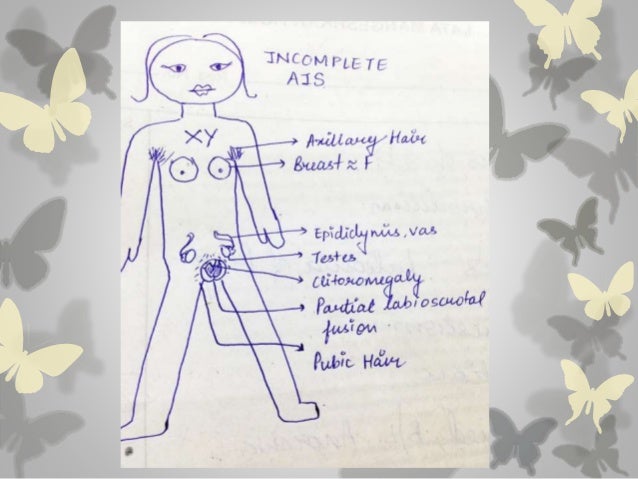 INCOMPLETE
AIS
XY
Axillary Hair
Breast ≈ F
Epididymis, vas
Testes
Clitoromegaly
Partial labioscrotal
fusion
Pubic Hair